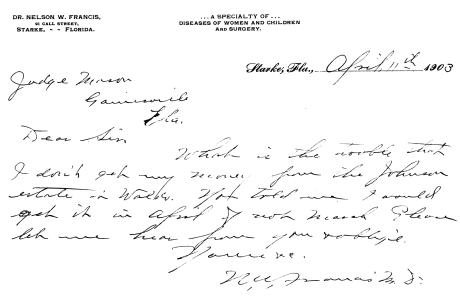 DR. NELSON W. FRANCIS,
21 CALL STREET,
STARKE, - - FLORIDA.
...A SPECIALTY OF...
DISEASES OF WOMEN AND CHILDREN
AND SURGERY.
Starke, Fla., April 11th 1903
Judge Mason
Gainesville
Fla.
Dear Sir
What is the trouble that
I don't get my money from the Johnson
estate in Waldo. You told me I would
get it in April if not March Please
let me hear from you & oblige.
Yours &c.
N.W. Francis M.D.